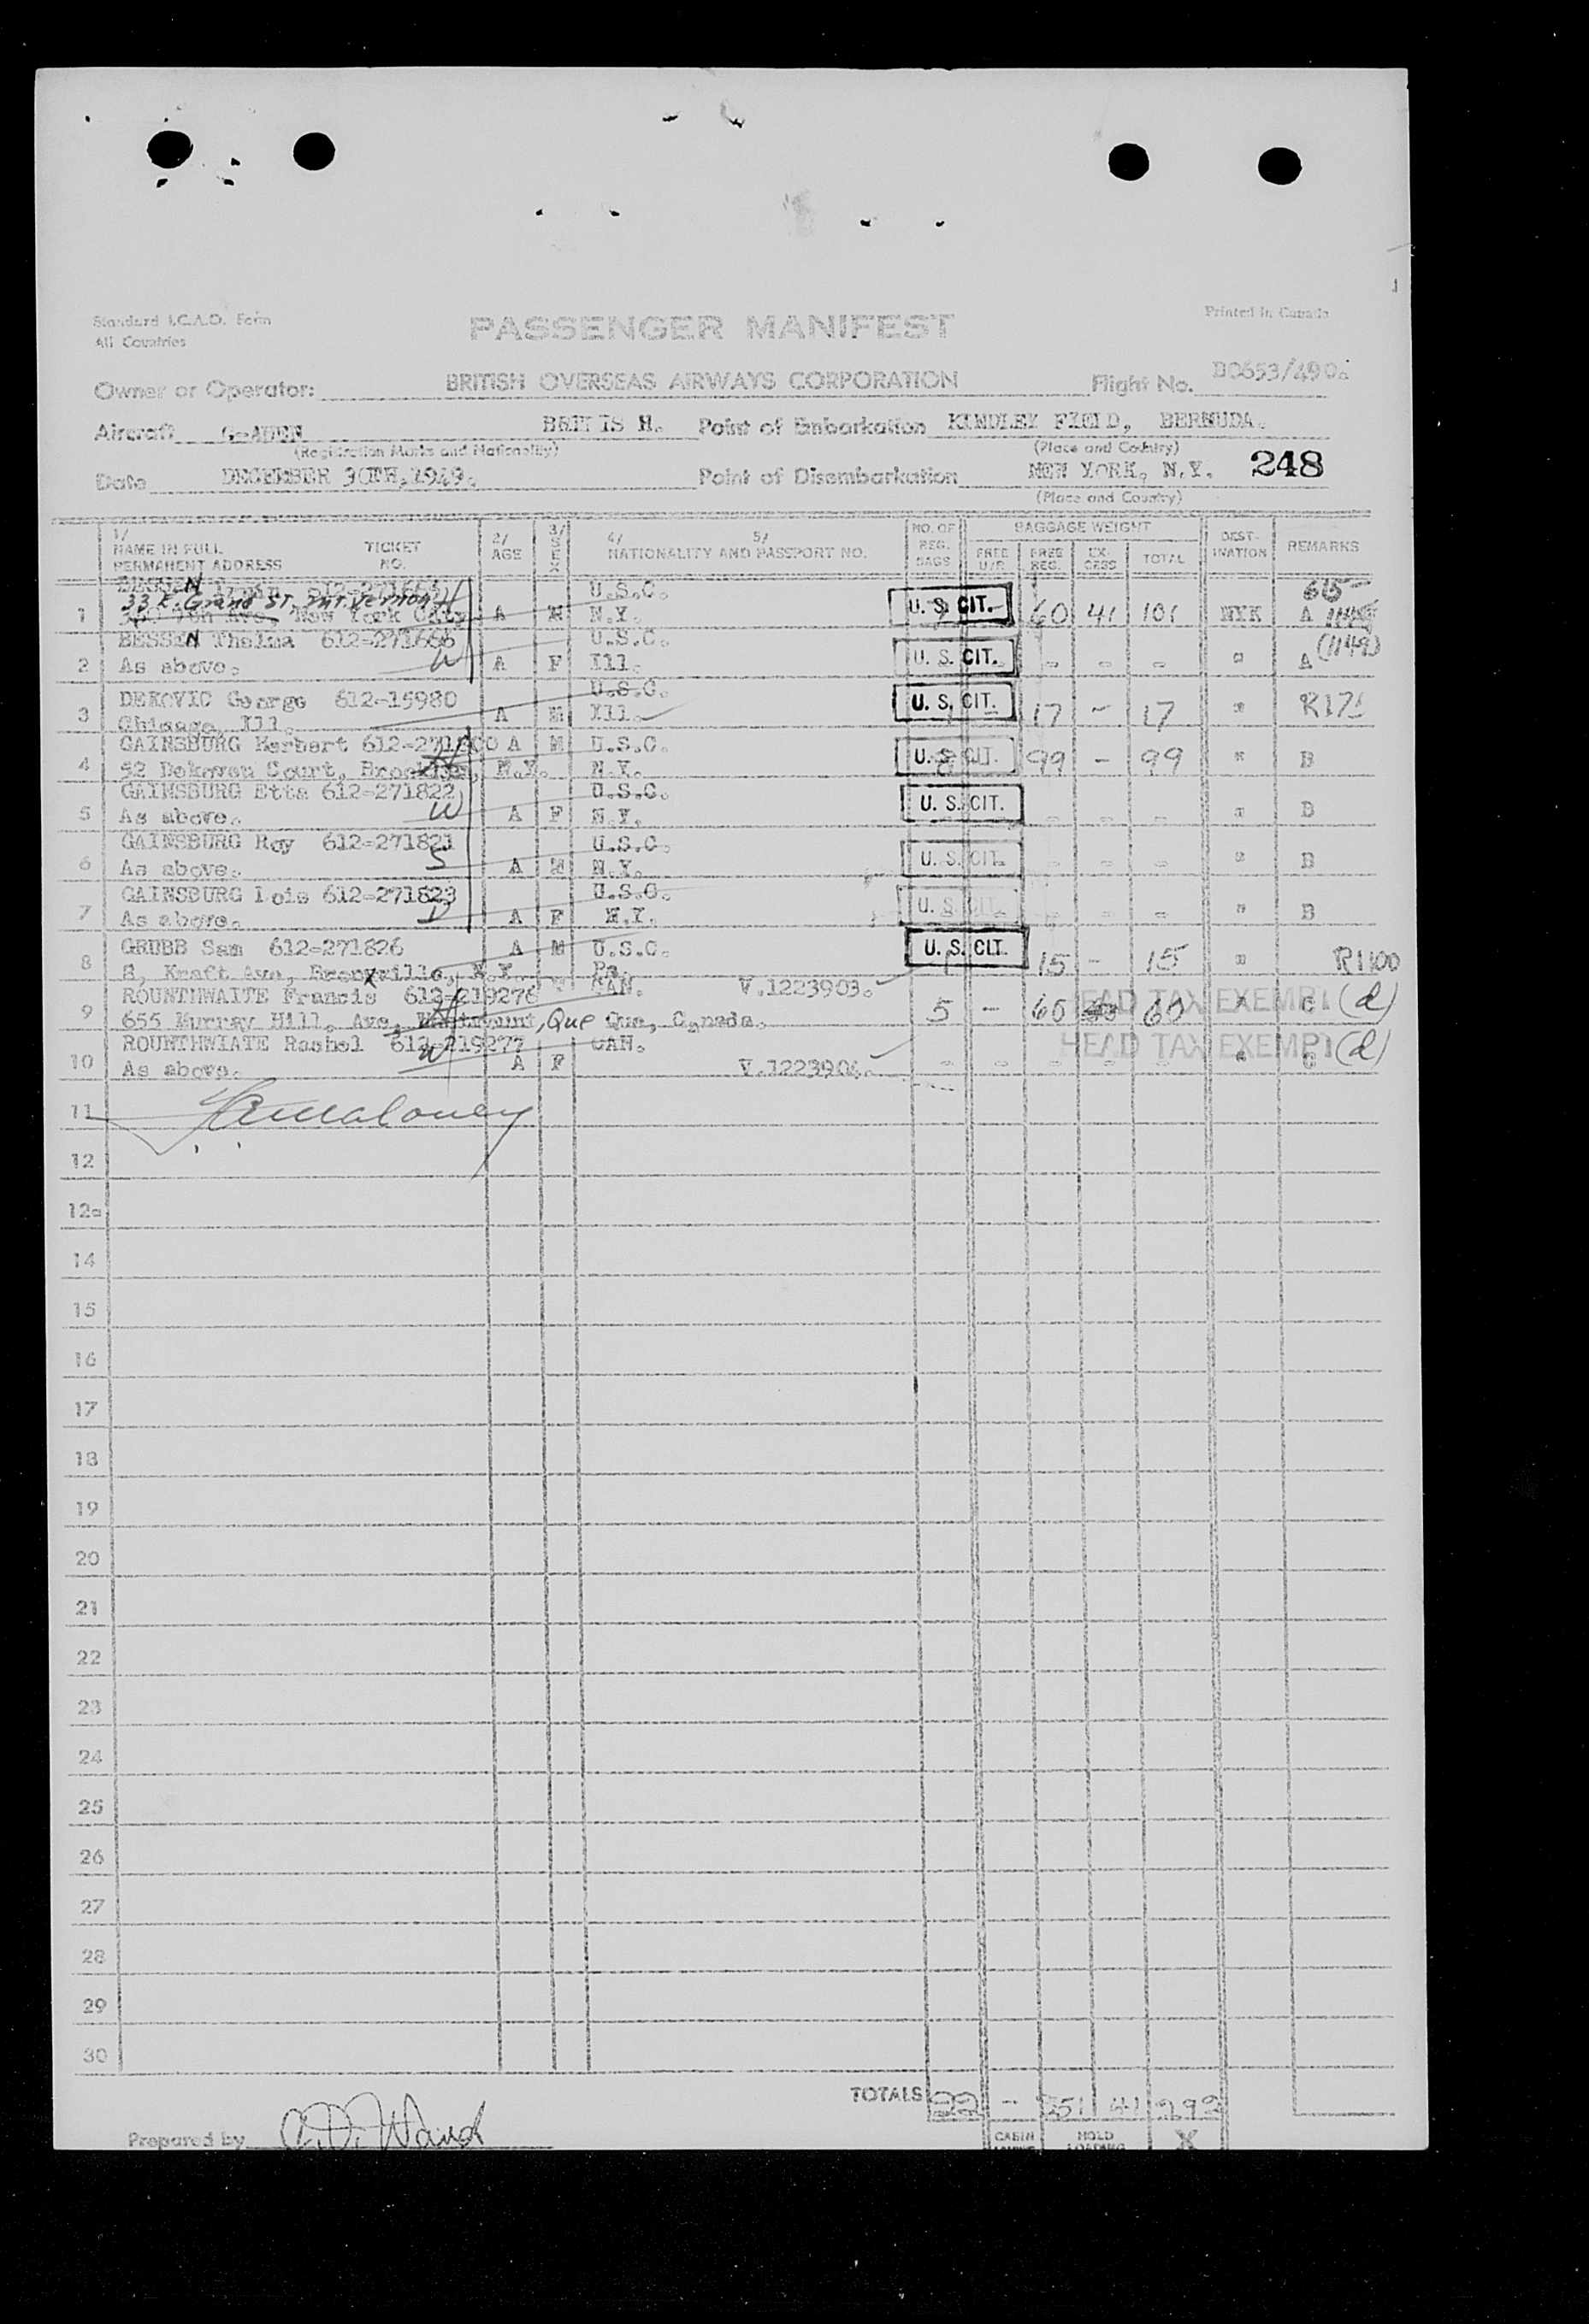 Standard I.C.A.O. Form
All Countries
PASSENGER MANIFEST
Printed in Canada
Owner or Operator: BRITISH OVERSEAS AIRWAYS CORPORATION Flight No. BO653/490.
Aircraft BRITISH. Point of Embarkation KINDLEY FIELD, BERMUDA.
(Registration Marks and Nationality) (Place and Country)
Date DECEMBER 30TH, 1949. Point of Disembarkation NEW YORK, N.Y. 248
(Place and Country)
1/ NAME IN FULL PERMANENT ADDRESS TICKET NO. 2/ AGE 3/ SEX 4/ 5/ NATIONALITY AND PASSPORT NO. NO. OF REG. BAGS BAGGAGE WEIGHT FREE REG. EXCESS TOTAL DESTINATION REMARKS
BESSEN U.S.C. 615
33 E. Grand ST, Mt. Vernon H
1 New York City A M N.Y. U. S. CIT. 60 41 101 NYK A
BESSEN Thelma 612-271666 U.S.C. (1149)
2 As above. W A F Ill. U. S. CIT. - - - " A
DEKOVIC George 612-15980 U.S.C.
3 Chicago, Ill. A M Ill. U. S. CIT. 17 - 17 "
GAINSBURG Herbert A M U.S.C.
4 52 Dekoven Court, Brooklyn, N.Y. H N.Y. U. S. CIT. 99 - 99 " B
GAINSBURG Etta 612-271822 U.S.C.
5 As above. W A F N.Y. U. S. CIT. - - - " B
GAINSBURG Roy 612-271821 U.S.C.
6 As above. S A M N.Y. U. S. CIT. - - - " B
GAINSBURG Lois 612-271823 U.S.C.
7 As above. D A F N.Y. U. S. CIT. - - - " B
GRUBB Sam 612-271826 A M U.S.C.
8 8, Kraft Ave, Bronxville, N.Y. Pa. U. S. CIT. 15 - 15 " R1100
ROUNTHWAITE Francis 612-219276 M CAN. V.1223903.
9 655 Murray Hill, Ave, Que Que, Canada. H 5 - 60 60 " C HEAD TAX EXEMPT (d)
ROUNTHWIATE Rachel 612-219277 CAN.
10 As above. W A F V.1223904. - - - - - " C HEAD TAX EXEMPT (d)
11
12
12a
14
15
16
17
18
19
20
21
22
23
24
25
26
27
28
29
30
TOTALS 22 - 251 41 292
Prepared by Ward CABIN HOLD LOADING X